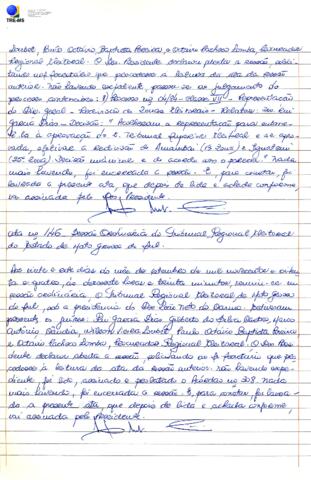 TRE-MS
Loubet, Paulo Octávio Baptista Pereira, e Octávio Pacheco Lomba, Procurador
Regional Eleitoral. O Sr. Presidente declarou aberta a sessão, solici-
tando ao secretário que procedesse a leitura da ata da sessão
anterior. Não havendo expediente, passou-se ao julgamento do
processo: 1) Processo nº - Classe VII - Representação
do Dr. Juiz
Decisão: "Acolheram a representação para subme-
tê-la à aprovação do E. Tribunal Superior Eleitoral e se apro-
vada, a de Amambai (1ª Zona) e Iguatemi
(25ª Zona). Decisão unânime e de acordo com o parecer." Nada
mais havendo, foi encerrada a sessão. E, para constar, foi
lavrada a presente ata, que depois de lida e achada conforme,
vai assinada pelo Presidente.
Ata nº 146. Sessão Ordinária do Tribunal Regional Eleitoral
do Estado de Mato Grosso do Sul.
Aos vinte e sete dias do mês de setembro de mil novecentos e oiten-
ta e quatro, às dezessete horas e trinta minutos, reuniu-se em
sessão ordinária o Tribunal Regional Eleitoral de Mato Grosso
do Sul, sob a presidência do Des. Leão Neto do Carmo. Estiveram
presentes os juízes: Rui Garcia Dias, Gilberto da Silva Castro, Marco
Antônio Cândia, Wilson Vieira Loubet, Paulo Octávio Baptista Pereira
e Octávio Pacheco Lomba, Procurador Regional Eleitoral. O Sr. Presi-
dente declarou aberta a sessão, solicitando ao secretário que pro-
cedesse à leitura da ata da sessão anterior. Não havendo expe-
diente, foi lido, assinado e publicado o Acórdão nº 308. Nada
mais havendo, foi encerrada a sessão. E, para constar foi lavra-
da a presente ata, que depois de lida e achada conforme,
vai assinada pelo Presidente.